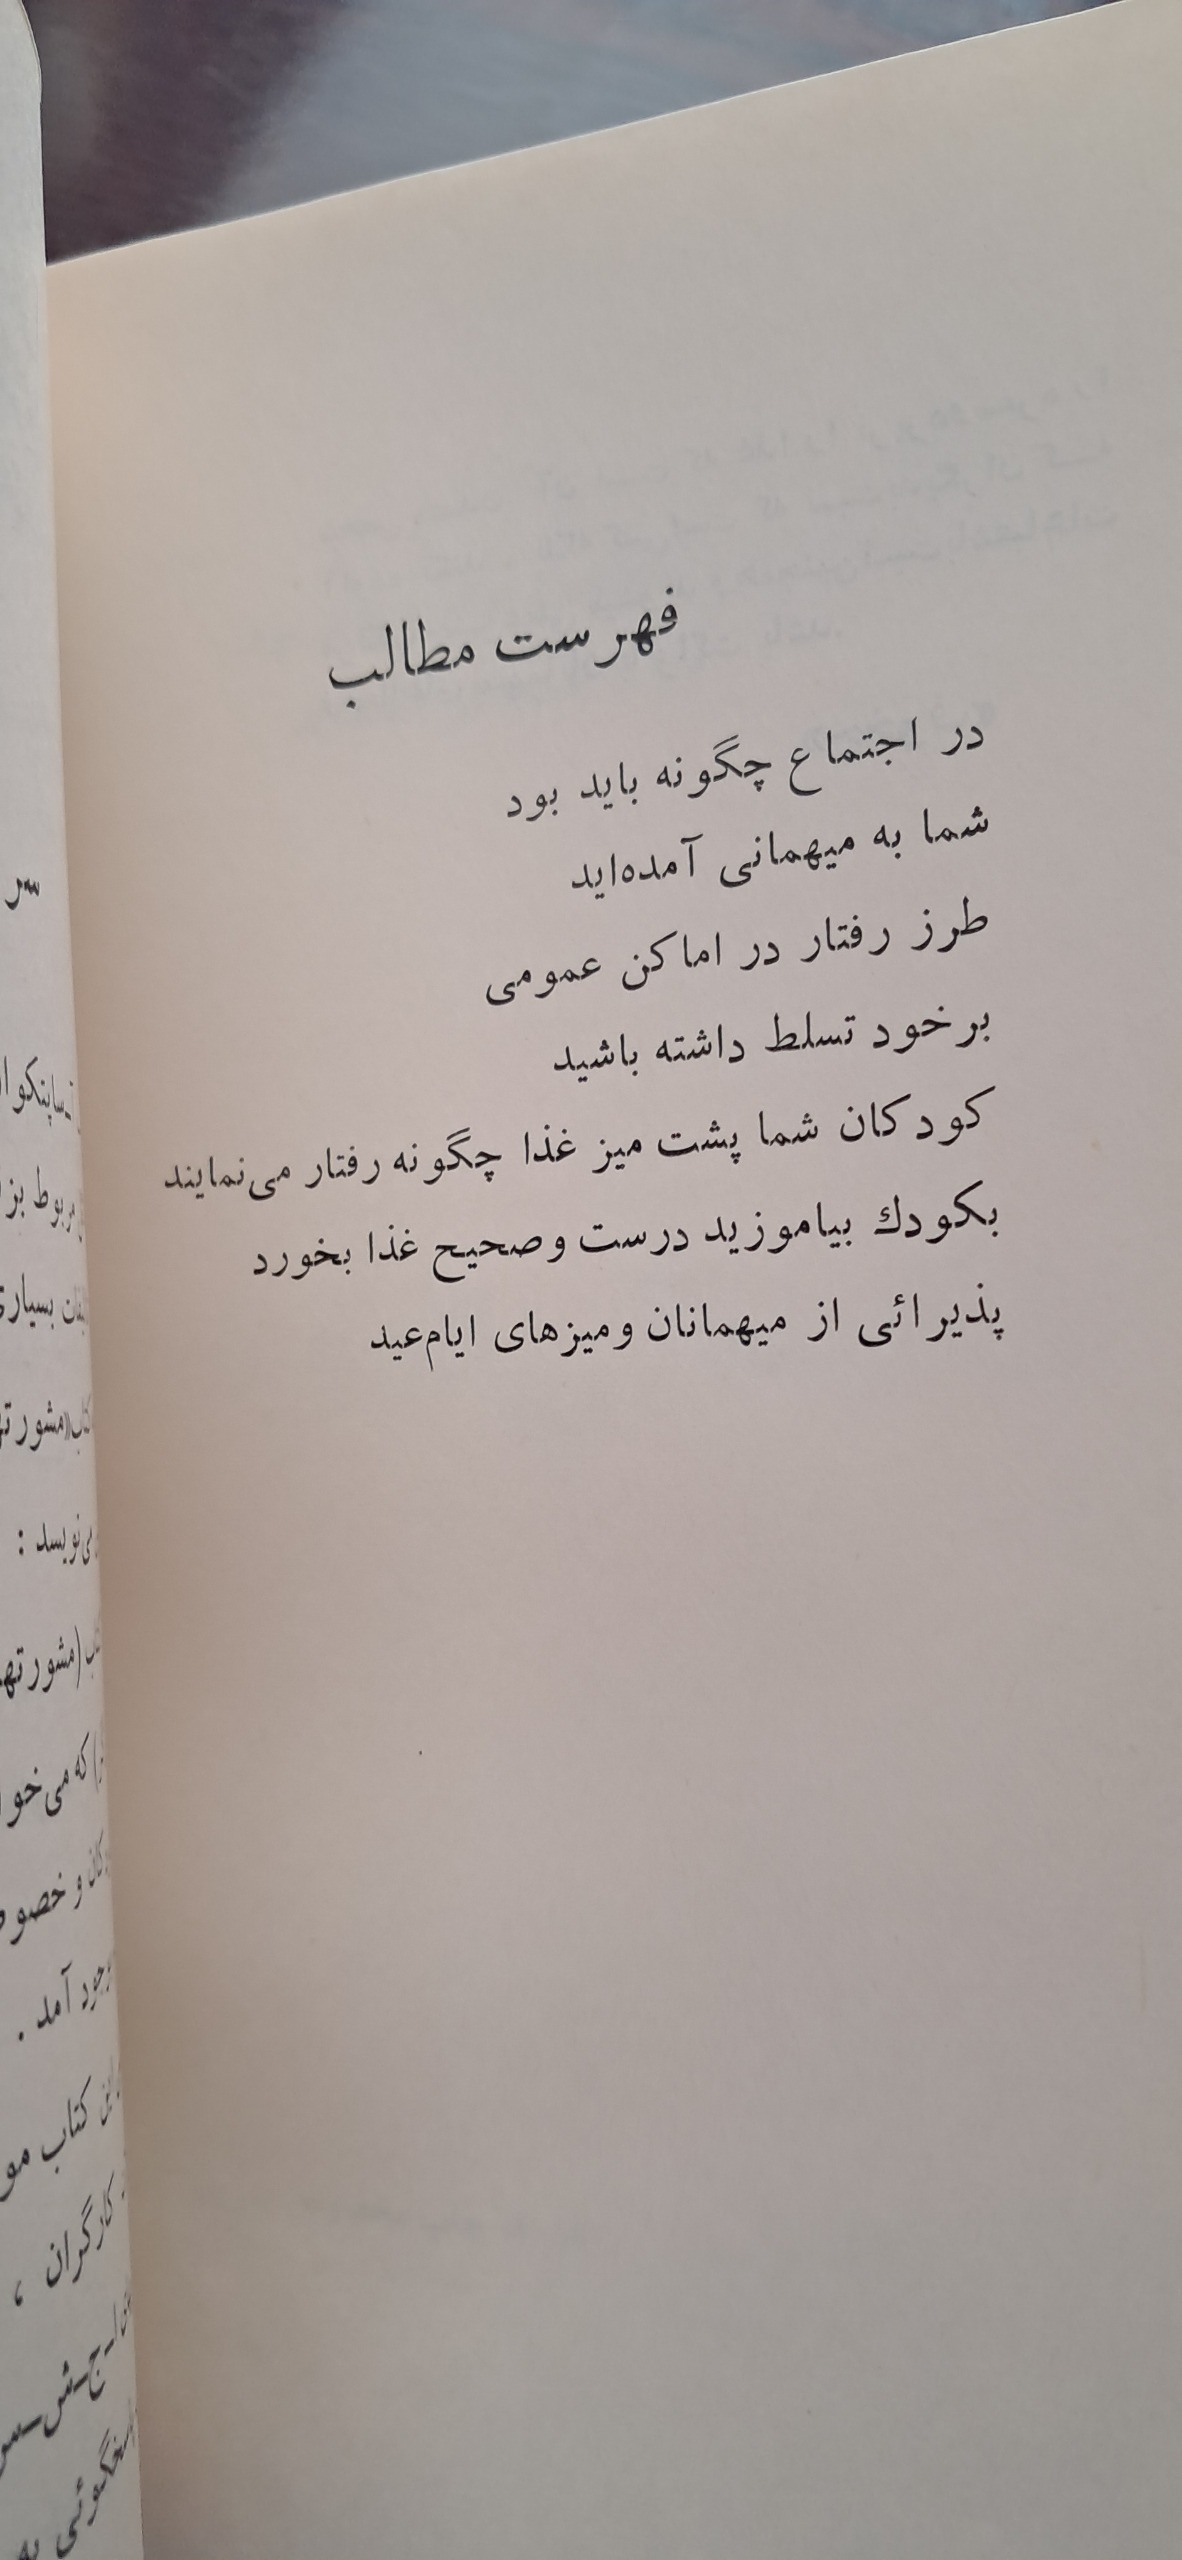 فهرست مطالب
در اجتماع چگونه باید بود
شما به میهمانی آمده‌اید
طرز رفتار در اماکن عمومی
بر خود تسلط داشته باشید
کودکان شما پشت میز غذا چگونه رفتار می‌نمایند
بکودك بیاموزید درست و صحیح غذا بخورد
پذیرائی از میهمانان و میزهای ایام عید
سر
مربوط
بسیاری
می‌نویسد :
که می‌خو
و خصو
آمد .
کتاب مو
کارگران ،